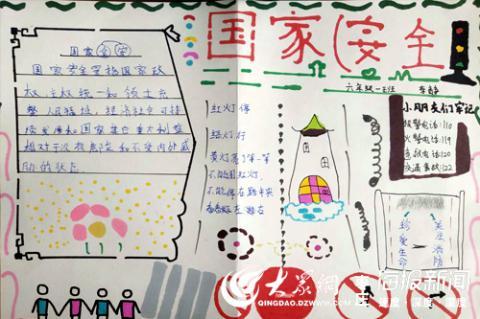 国家安全
六年级一班
国家安全
国家安全是指国家政
权、主权、统一和领土完
整、人民福祉、经济社会可持
续发展和国家其他重大利益
相对于没有危险和不受内外威
胁的状态
红灯停
绿灯行
黄灯亮了等一等
不能闯红灯
不能停在路中央
小朋友们牢记
报警电话:110
火警电话:119
急救电话:120
交通事故:122
珍爱生命
关注消防
大众网
海报新闻
QINGDAO.DZWWW.COM
速度·深度·温度